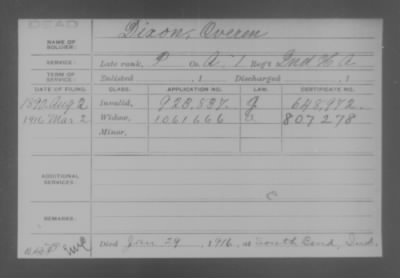 DEAD
NAME OF SOLDIER: Dixon, Overen
SERVICE: Late rank, P Co. A, 1 Reg't Ind H A
TERM OF SERVICE: Enlisted , 1 Discharged , 1
DATE OF FILING. CLASS. APPLICATION NO. LAW. CERTIFICATE NO.
1890 Aug 2 Invalid, 928,537. 648,972.
1916 Mar 2 Widow, 1061666 807278
Minor,
ADDITIONAL SERVICES:
C
REMARKS:
Died Jan 29, 1916, at South Bend, Ind.